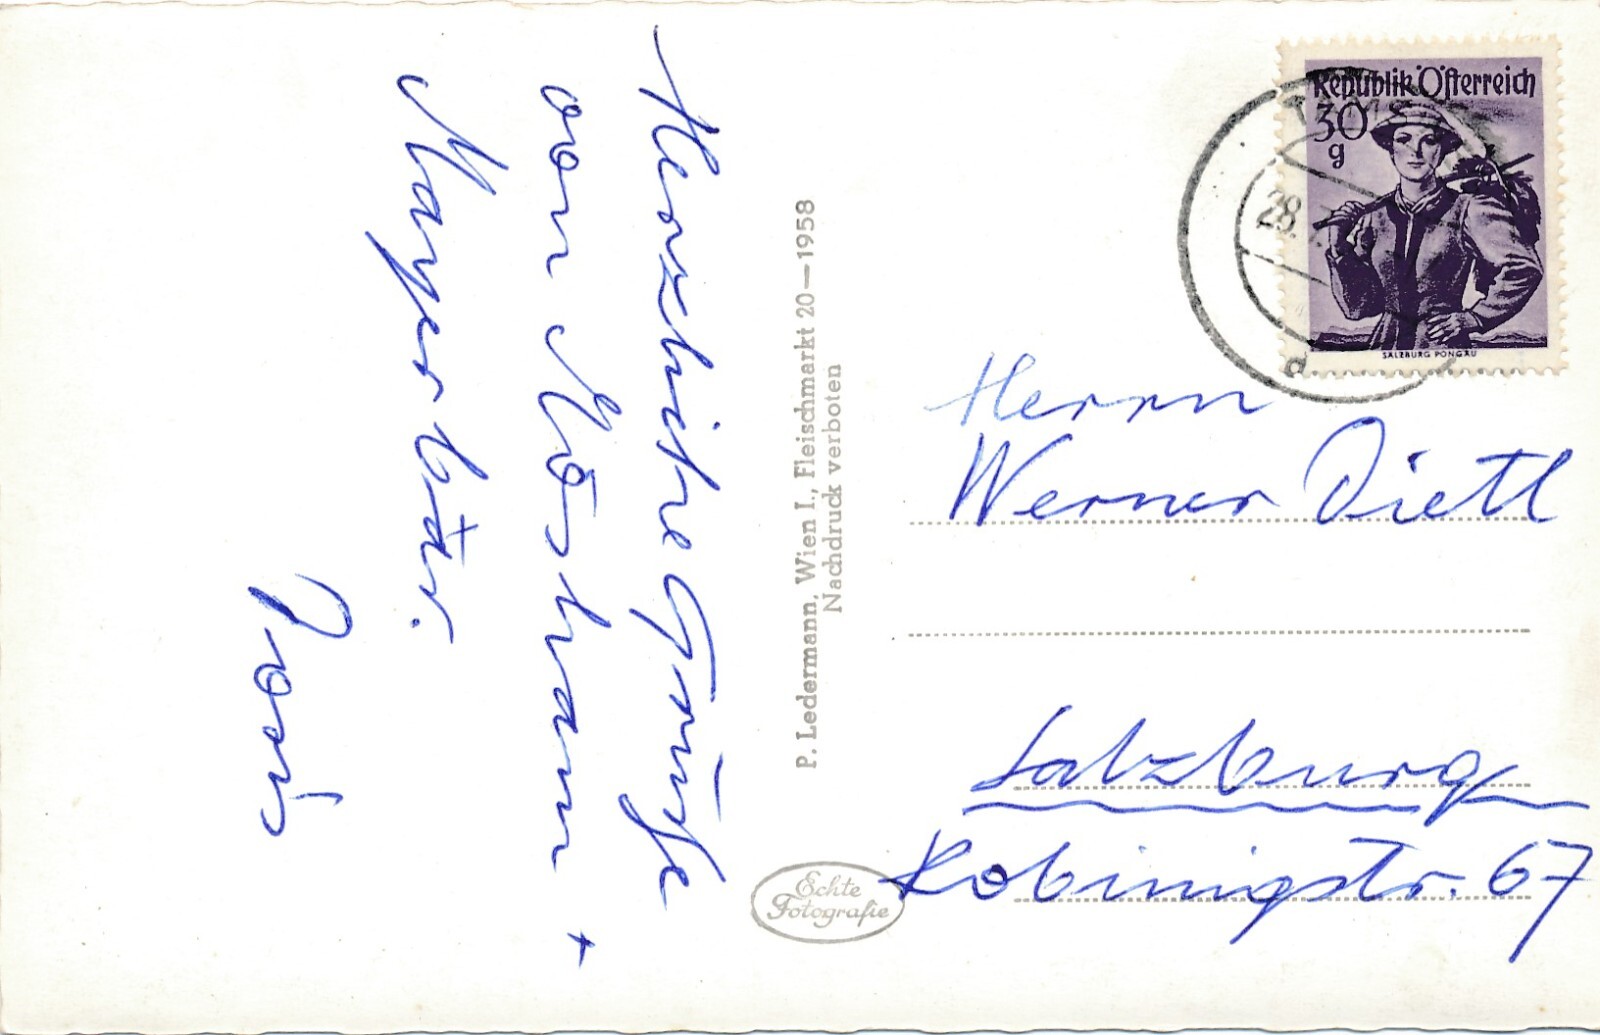 Herzliche Grüße
von Moosham +
Mayerbär.
P. Ledermann, Wien I., Fleischmarkt 20—1958
Nachdruck verboten
Echte
Fotografie
Republik Österreich
30
g
SALZBURG PONGAU
28.
d
Herrn
Werner Dietl
Salzburg
Robinigstr. 67